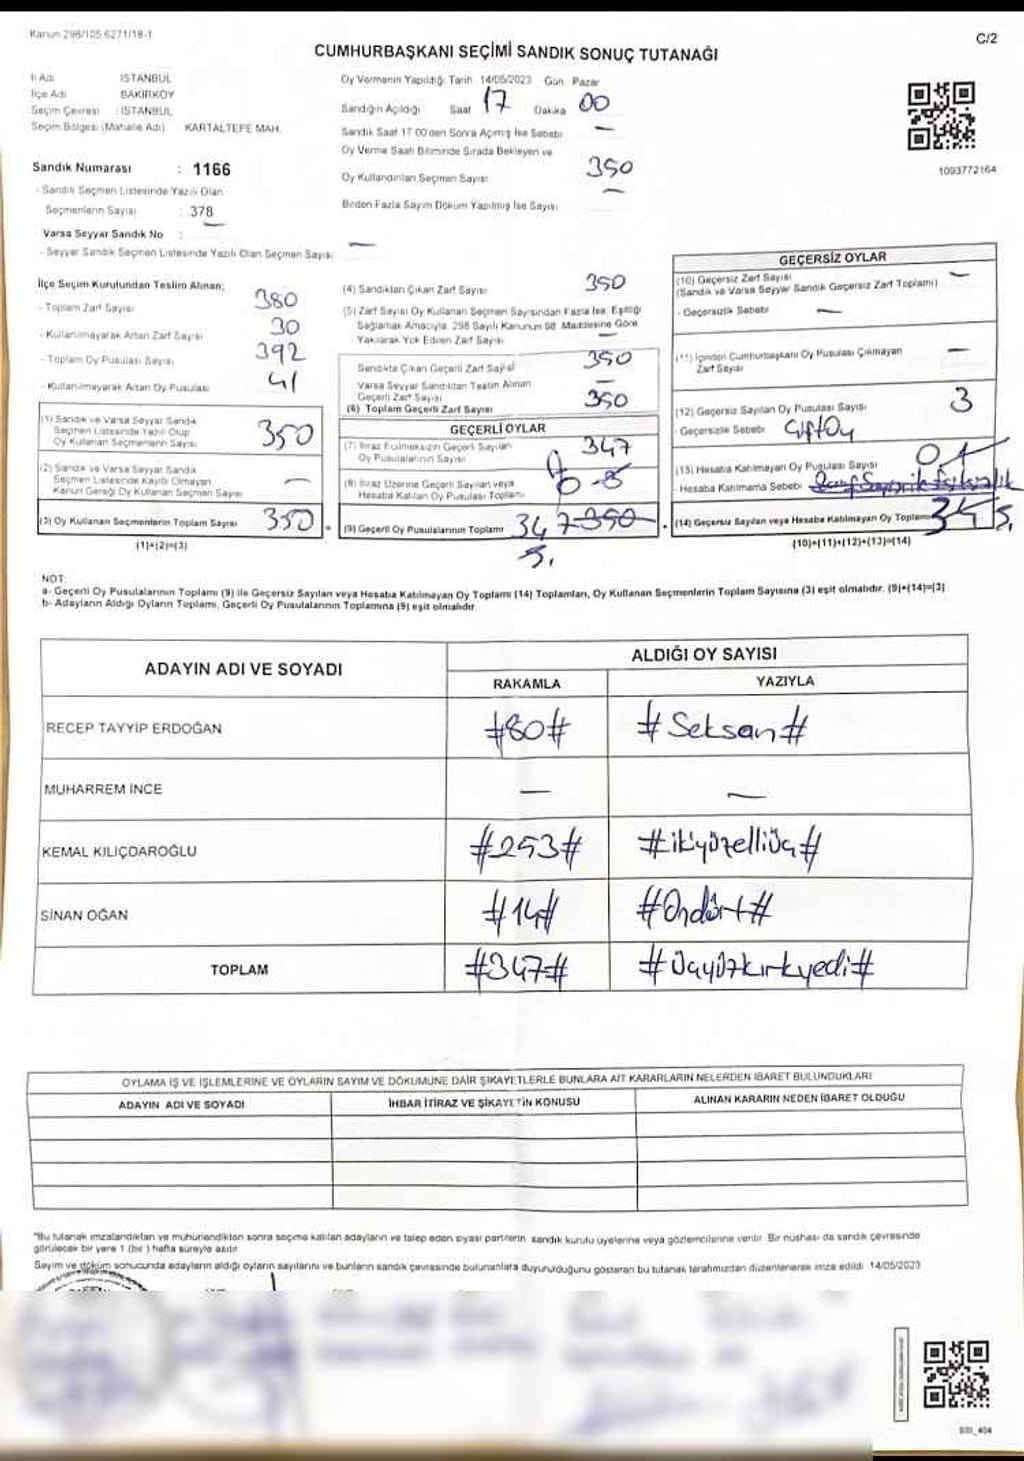 Kanun 298/105,6271/18-1
C/2
CUMHURBAŞKANI SEÇİMİ SANDIK SONUÇ TUTANAĞI
İl Adı : İSTANBUL
İlçe Adı : BAKIRKÖY
Seçim Çevresi : İSTANBUL
Seçim Bölgesi (Mahalle Adı) : KARTALTEPE MAH.
Oy Vermenin Yapıldığı Tarih 14/05/2023 Gün Pazar
Sandığın Açıldığı Saat 17 Dakika 00
Sandık Saat 17 00'den Sonra Açılmış İse Sebebi —
Oy Verme Saati Bitiminde Sırada Bekleyen ve
Oy Kullandırılan Seçmen Sayısı 350
Birden Fazla Sayım Döküm Yapılmış İse Sayısı —
1093772164
Sandık Numarası : 1166
- Sandık Seçmen Listesinde Yazılı Olan
Seçmenlerin Sayısı : 378
Varsa Seyyar Sandık No : —
- Seyyar Sandık Seçmen Listesinde Yazılı Olan Seçmen Sayısı —
İlçe Seçim Kurulundan Teslim Alınan;
- Toplam Zarf Sayısı 380
- Kullanılmayarak Artan Zarf Sayısı 30
- Toplam Oy Pusulası Sayısı 392
- Kullanılmayarak Artan Oy Pusulası 41
(1) Sandık ve Varsa Seyyar Sandık
Seçmen Listesinde Yazılı Olup
Oy Kullanan Seçmenlerin Sayısı 350
(2) Sandık ve Varsa Seyyar Sandık
Seçmen Listesinde Kayıtlı Olmayan
Kanun Gereği Oy Kullanan Seçmen Sayısı —
(3) Oy Kullanan Seçmenlerin Toplam Sayısı 350
(1)+(2)=(3)
(4) Sandıktan Çıkan Zarf Sayısı 350
(5) Zarf Sayısı Oy Kullanan Seçmen Sayısından Fazla İse, Eşitliği
Sağlamak Amacıyla, 298 Sayılı Kanunun 98. Maddesine Göre
Yakılarak Yok Edilen Zarf Sayısı —
Sandıkta Çıkan Geçerli Zarf Sayısı 350
Varsa Seyyar Sandıktan Teslim Alınan
Geçerli Zarf Sayısı —
(6) Toplam Geçerli Zarf Sayısı 350
GEÇERLİ OYLAR
(7) İtiraz Edilmeksizin Geçerli Sayılan
Oy Pusulalarının Sayısı 347
(8) İtiraz Üzerine Geçerli Sayılan veya
Hesaba Katılan Oy Pusulası Toplamı
(9) Geçerli Oy Pusulalarının Toplamı 347 350
GEÇERSİZ OYLAR
(10) Geçersiz Zarf Sayısı —
(Sandık ve Varsa Seyyar Sandık Geçersiz Zarf Toplamı)
- Geçersizlik Sebebi —
(11) İçinden Cumhurbaşkanı Oy Pusulası Çıkmayan
Zarf Sayısı —
(12) Geçersiz Sayılan Oy Pusulası Sayısı 3
- Geçersizlik Sebebi Çift Oy
(13) Hesaba Katılmayan Oy Pusulası Sayısı 0
- Hesaba Katılmama Sebebi
(14) Geçersiz Sayılan veya Hesaba Katılmayan Oy Toplamı 3
(10)+(11)+(12)+(13)=(14)
NOT:
a- Geçerli Oy Pusulalarının Toplamı (9) ile Geçersiz Sayılan veya Hesaba Katılmayan Oy Toplamı (14) Toplamları, Oy Kullanan Seçmenlerin Toplam Sayısına (3) eşit olmalıdır. (9)+(14)=(3)
b- Adayların Aldığı Oyların Toplamı, Geçerli Oy Pusulalarının Toplamına (9) eşit olmalıdır.
ADAYIN ADI VE SOYADI
ALDIĞI OY SAYISI
RAKAMLA YAZIYLA
RECEP TAYYİP ERDOĞAN #80# #Seksan#
MUHARREM İNCE — —
KEMAL KILIÇDAROĞLU #253# #ikiyüzelliüç#
SİNAN OĞAN #14# #Ondört#
TOPLAM #347# #üçyüzkırkyedi#
OYLAMA İŞ VE İŞLEMLERİNE VE OYLARIN SAYIM VE DÖKÜMÜNE DAİR ŞİKAYETLERLE BUNLARA AİT KARARLARIN NELERDEN İBARET BULUNDUKLARI
ADAYIN ADI VE SOYADI İHBAR İTİRAZ VE ŞİKAYETİN KONUSU ALINAN KARARIN NEDEN İBARET OLDUĞU
*Bu tutanak imzalandıktan ve mühürlendikten sonra seçime katılan adayların ve talep eden siyasi partilerin sandık kurulu üyelerine veya gözlemcilerine verilir. Bir nüshası da sandık çevresinde
görülecek bir yere 1 (bir) hafta süreyle asılır.
Sayım ve döküm sonucunda adayların aldığı oyların sayılarını ve bunların sandık çevresinde bulunanlara duyurulduğunu gösteren bu tutanak tarafımızdan düzenlenerek imza edildi. 14/05/2023